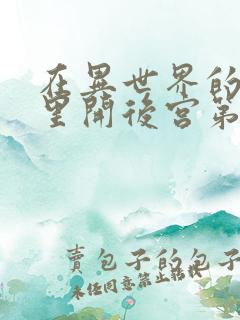 在異世界的
里開後宮第
賣包子的包子
未任同意禁止转找